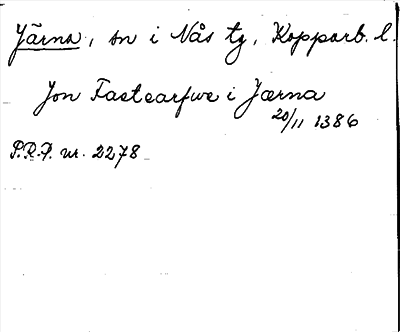 Järna, sn i Nås tg, Kopparb. l.
Jon Fastearfwe i Jærna
20/11 1386
P.R.P. nr. 2278